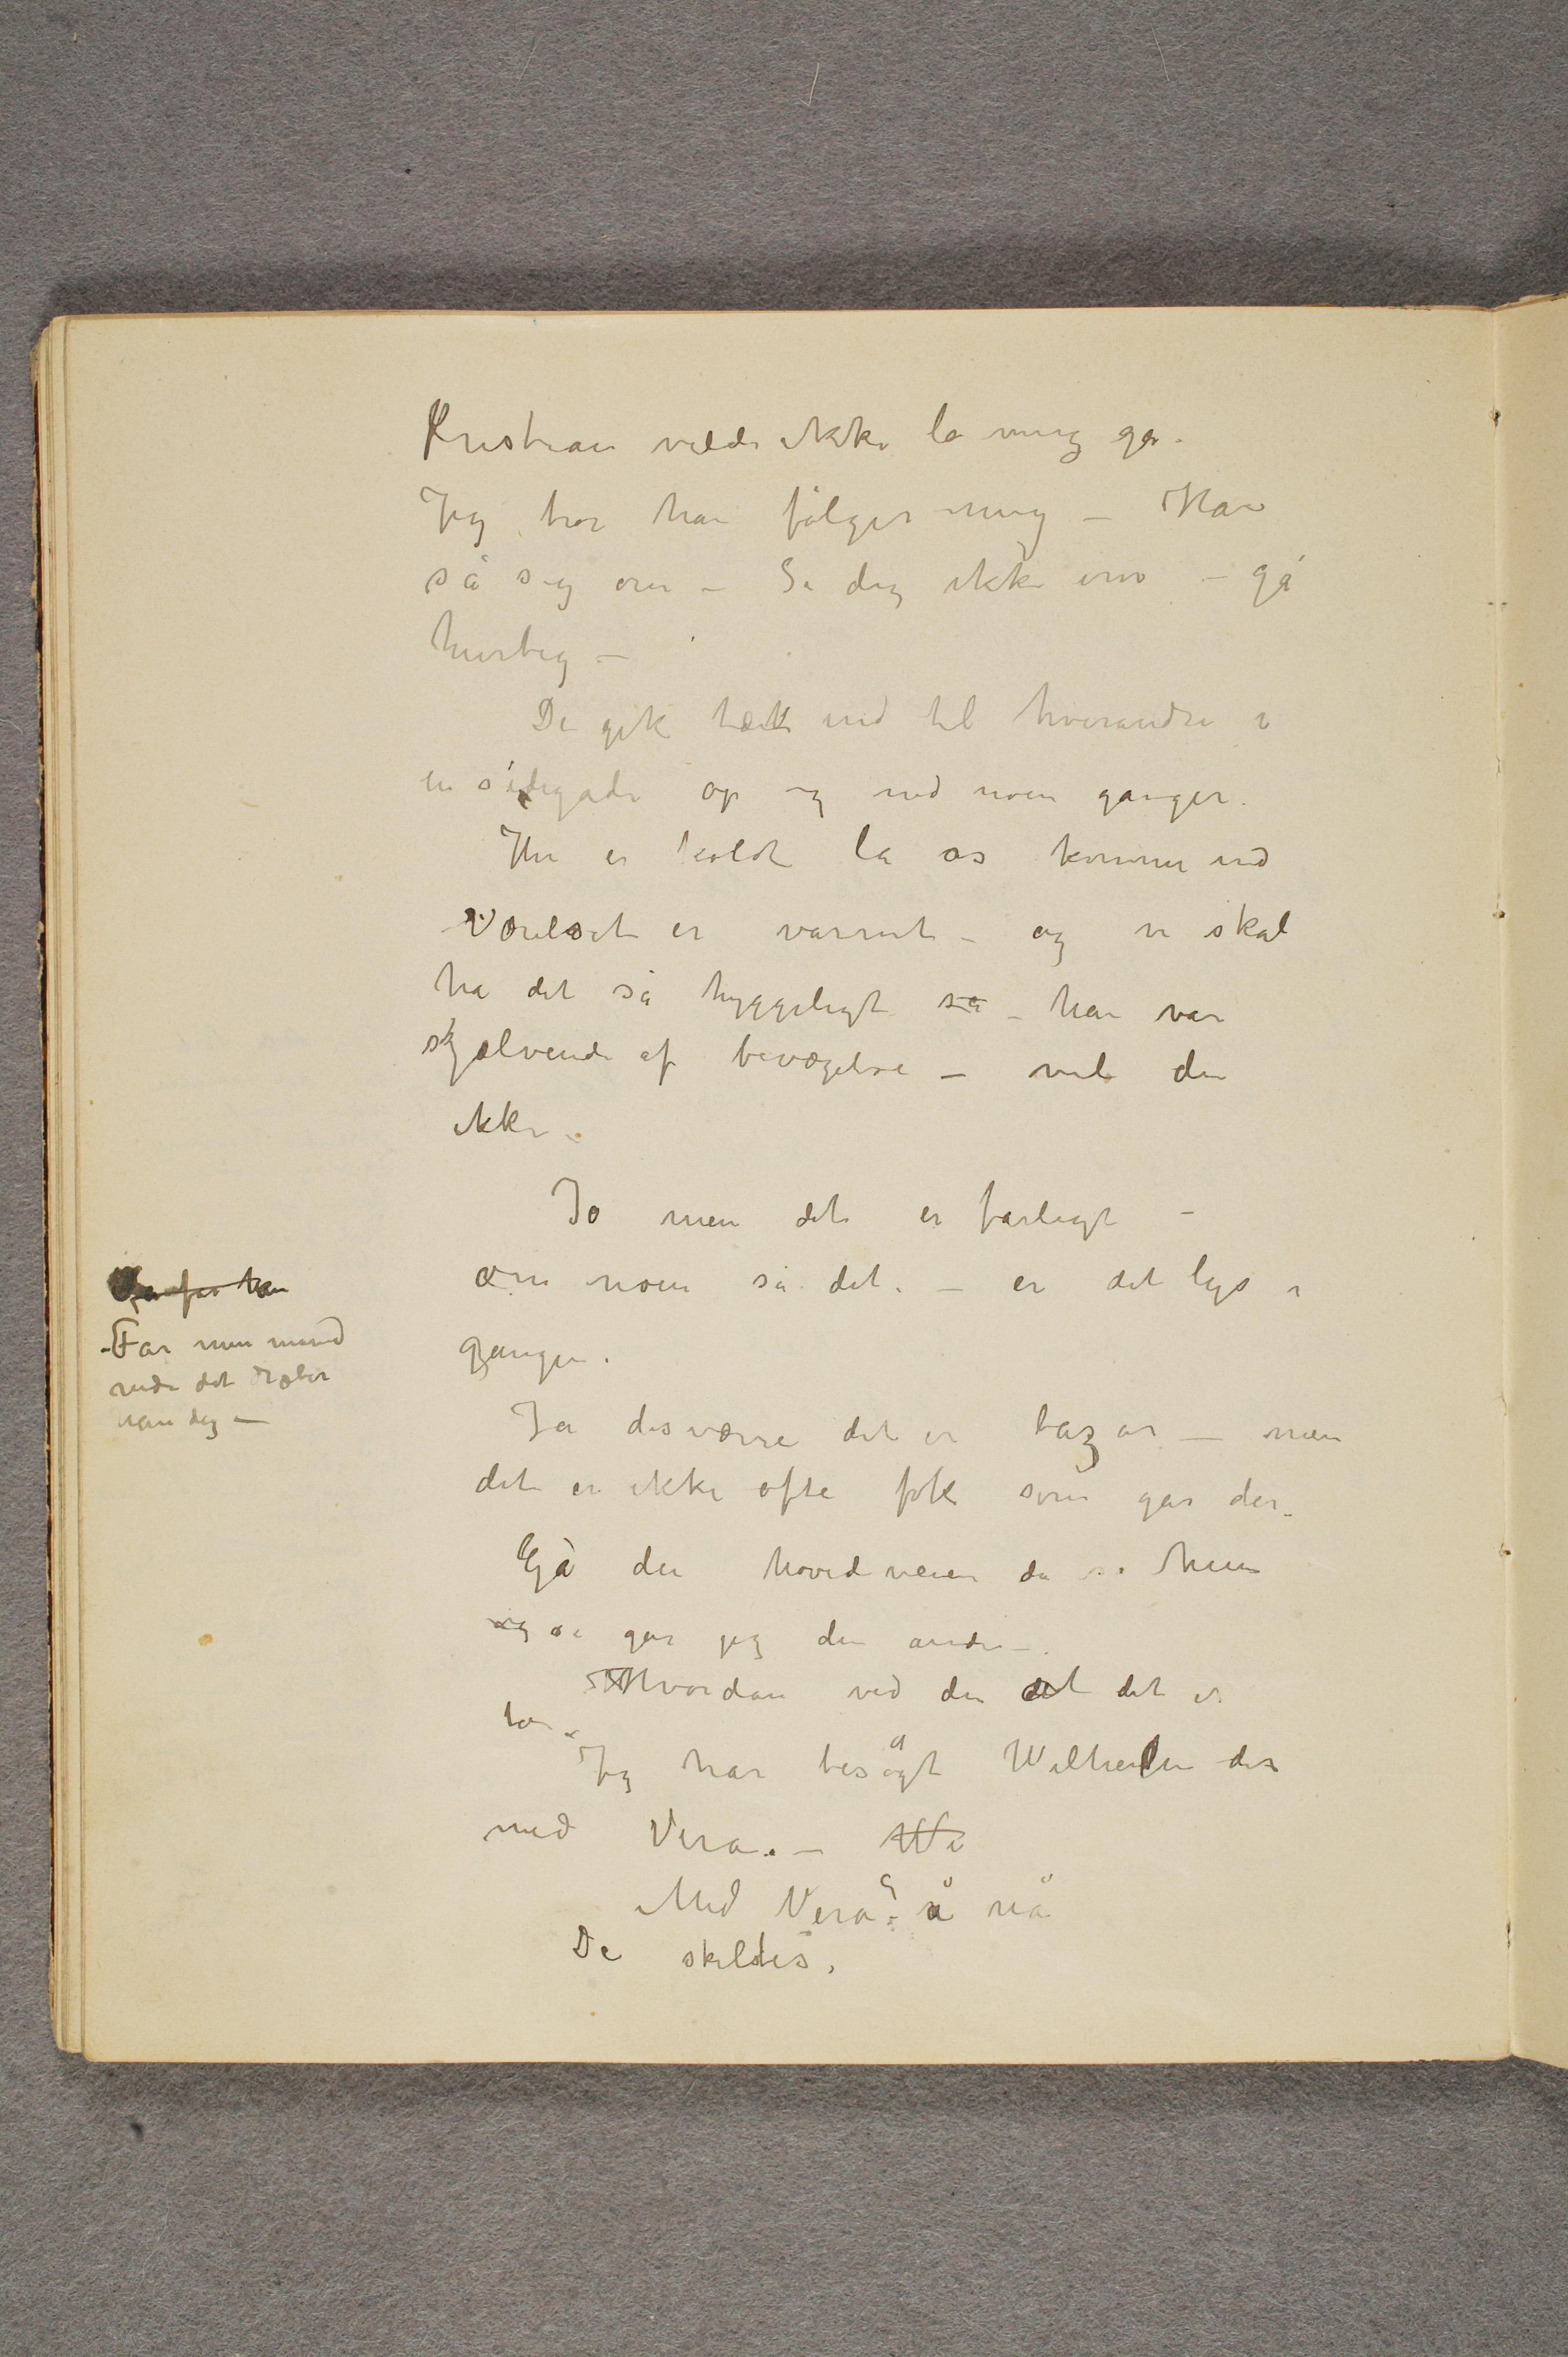 Kristian vilde ikke la mig gå.
Jeg tror han følger mig – Han
så sig om – Se dig ikke om – gå
hurtig –
De gik tæt ind til hverandre i
en sidegade op og ned noen ganger.
Her er koldt la os komme ind
Værelset er varmt – og vi skal
ha det så hyggeligt så – han var
skjælvende af bevægelse – vil du
ikke –
Jo men det er farligt –
om noen så det. – er det lys i
gangen.
Får min mand
vide det dræber
han dig –
Ja desværre det er bazar – men
det er ikke ofte folk som går der.
Gå du hovedveien da sa hun
og så går jeg den anden –
Hvordan ved du at det er
to –
Jeg har besøgt Wilhelm der
med Vera. – Wi
Med Vera? å nå
De skiltes.